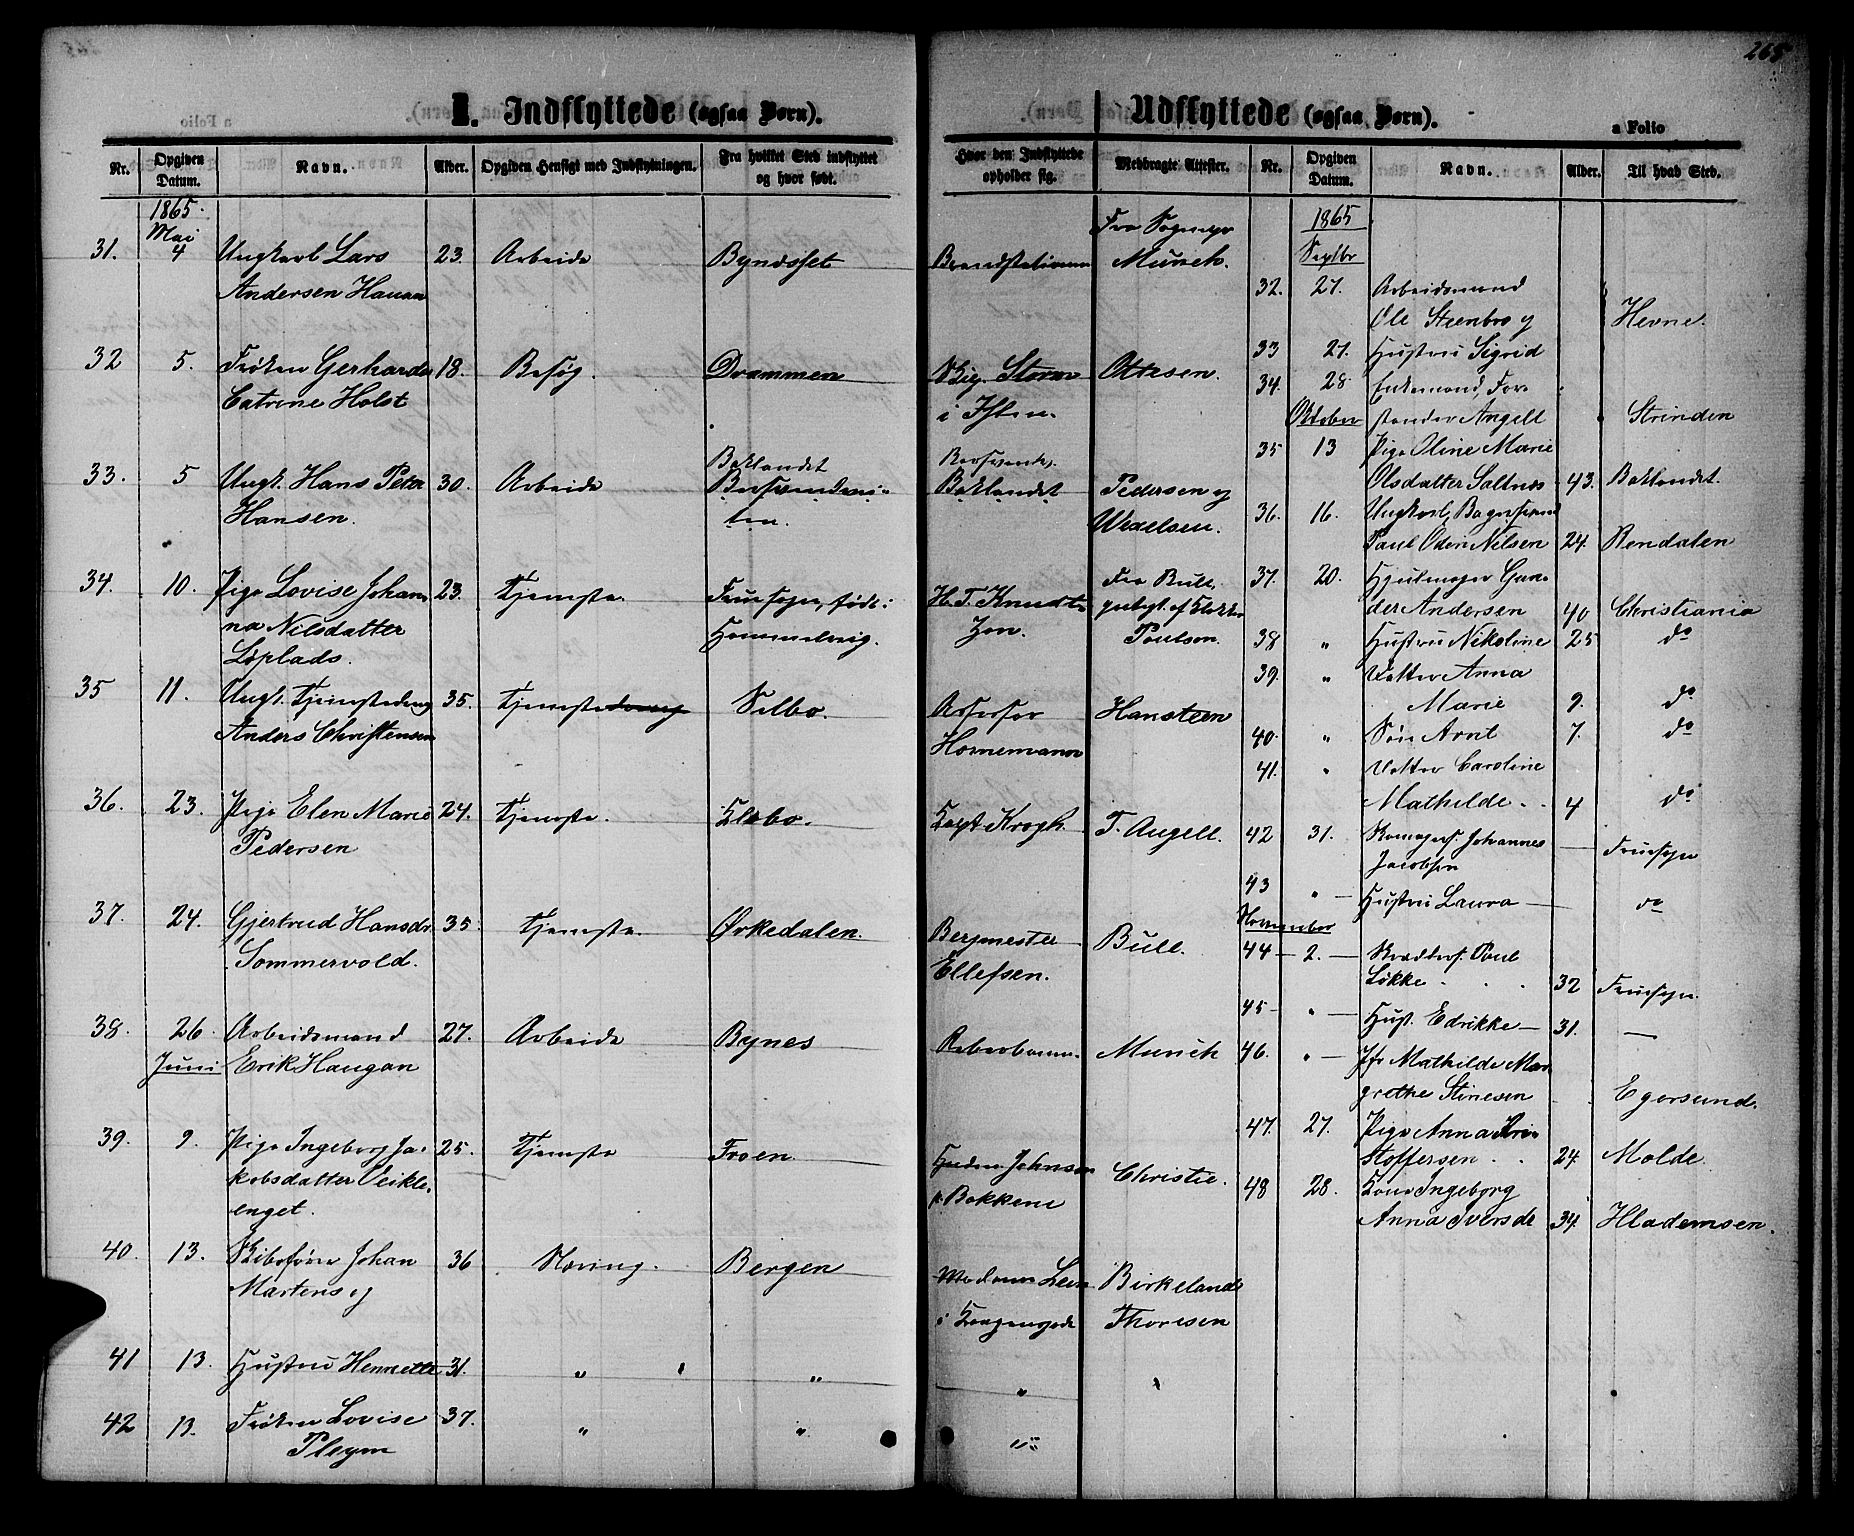 265
I. Indflyttede (ogsaa Børn).
Nr. Opgiven Datum. Navn. Alder. Opgiven Hensigt med Indflytningen. Fra hvilket Sted indflyttet og hvor født. Hvor den Indflyttede opholder sig. Medbragte Attester.
1865.
Mai
31. 4 Ungkarl Lars 23. Arbeide Byndsset Fra Sognepr
Andersen Hauan Munch.
32 5. Frøken Gerharda 18. Besøg. Drammen Storm Ottesen.
Catrine Holst i Ihlen.
33. 5 Ungk. Hans Peter 30. Arbeide Baklandet Baklandet Pedersen og
Hansen. Wexelsen.
34. 10. Pige Lovise Johan 23. Tjeneste. Fruesogn, født i H. T. Knudt Fra Bull
na Nilsdatter Hommelvig. Zon. Poulson.
Løplads.
35 11. Ungk. Tjenestedreng 35. Tjeneste Selbo. Assessor Hansteen
Anders Christensen Hornemann
36. 23. Pige Elen Marie 24. Tjeneste. Klæbo. Kapt Krogh T. Angell.
Pedersen
37. 24. Gjertrud Hansdr 35. Tjeneste. Ørkedalen. Bergmester Bull.
Sommervold. Ellefsen.
38. 26. Arbeidsmand 27. Arbeide Bynes Munch
Juni Erik Haugan
39. 9. Pige Ingeborg Ja- 25. Tjeneste Froen Johnsen Christie.
kobsdatter Veikle- p. Bakkene
enget.
40. 13. Skibsfører Johan 36 Næring. Bergen Madam Lein Birkeland
Martens og Thoresen
41 13. Hustru Henriette 31. " " " "
42 13. Frøken Lovise 37. " " "
Pleym
Udflyttede (ogsaa Børn).
a Folio
Nr. Opgiven Datum. Navn. Alder. Til hvad Sted.
1865
Septbr
32. 27. Arbeidsmand
Ole Steenbro og Hevne.
33 27. Hustru Sigrid
34. 28. Enkemand, For-
Oktober stander Angell Strinden
35 13 Pige Oline Marie
Olsdatter Saltnes 43. Baklandet.
36. 16. Ungkarl, Bagersvend
Paul Odin Nilsen 24. Rendalen
37. 20. Hjulmager Gun-
der Andersen 40 Christiania
38 " Hustru Nikoline 25 do
39. " Datter Anna
Marie 9. do
40. " Søn Arnt 7. do
41. " Datter Caroline
Mathilde 4 do
42 31. Johannes
Jacobsen Fruesogn
43 " Hustru Laura do
November
44 2. Paul
Løkke 32 Fruesogn.
45 " Hust. Edrikke 31. —
46. " Jfr Mathilde Mar
grethe Stinesen Egersund.
47. 27. Pige Anna Kri-
stoffersen 24. Molde.
48 28. Kone Ingeborg
Anna Iversdr 34. Hlademsen.